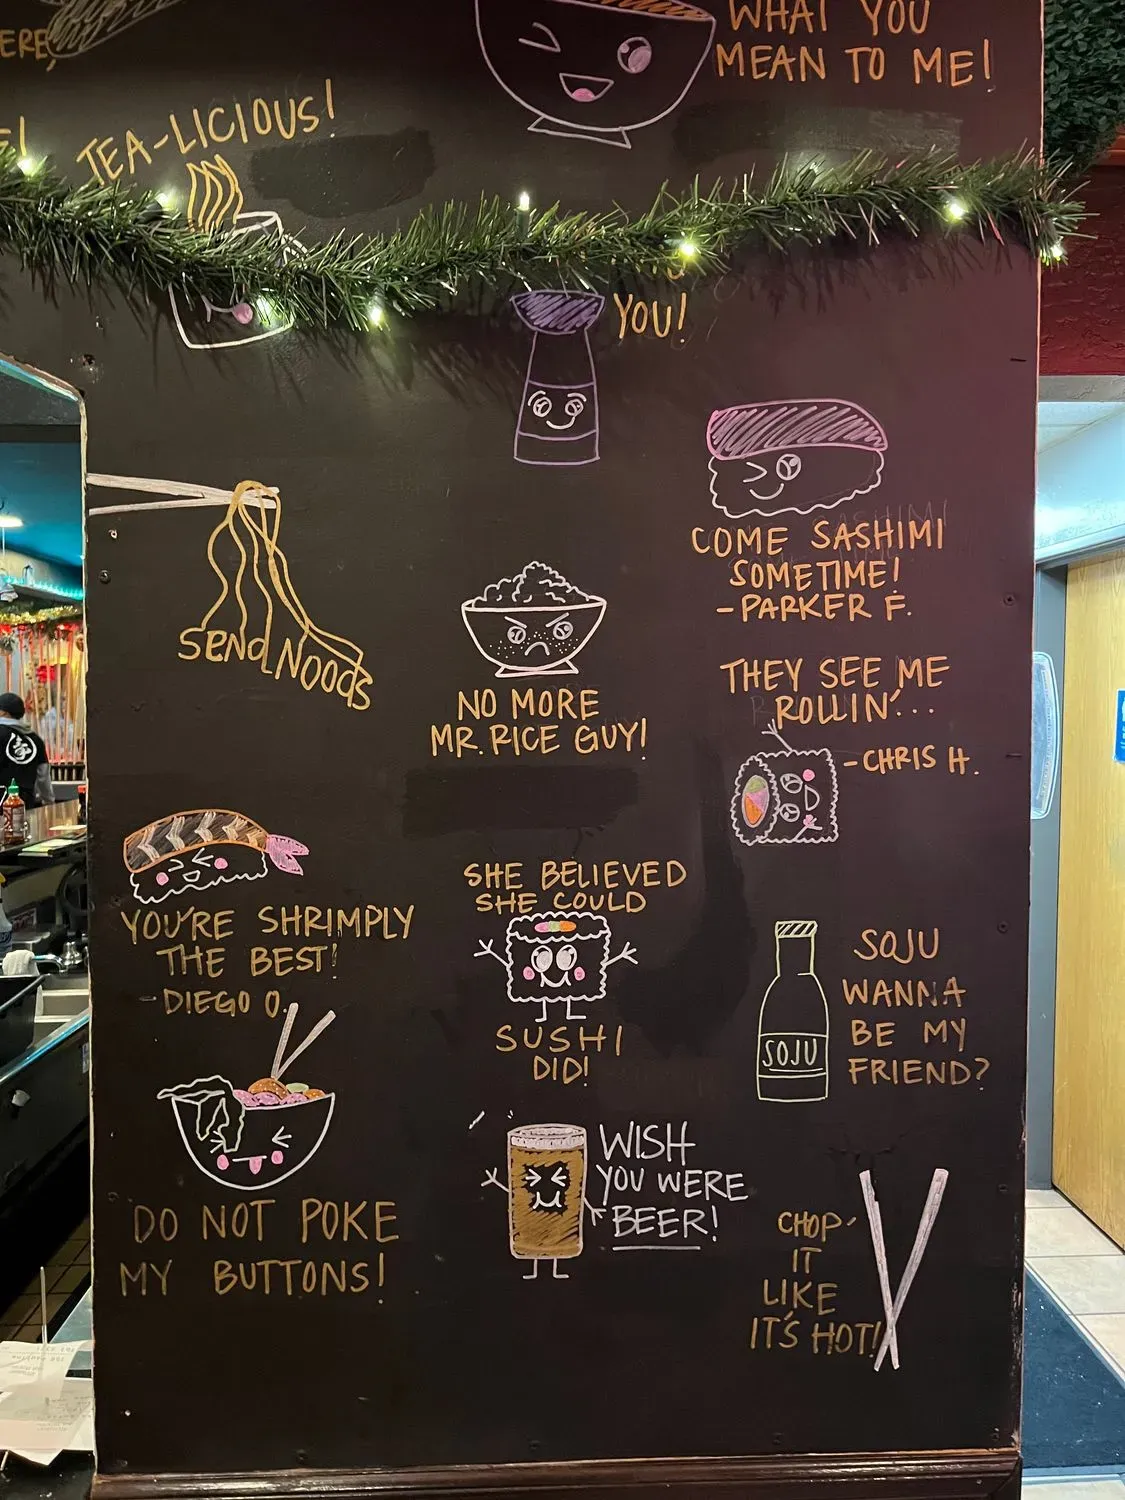 WHAT YOU
MEAN TO ME!
TEA-LICIOUS!
YOU!
COME SASHIMI
SOMETIME!
-PARKER F.
SEND NOODS
NO MORE
MR. RICE GUY!
THEY SEE ME
ROLLIN'...
-CHRIS H.
YOU'RE SHRIMPLY
THE BEST!
-DIEGO O.
SHE BELIEVED
SHE COULD
SUSHI
DID!
SOJU
SOJU
WANNA
BE MY
FRIEND?
DO NOT POKE
MY BUTTONS!
WISH
YOU WERE
BEER!
CHOP
IT
LIKE
IT'S HOT!